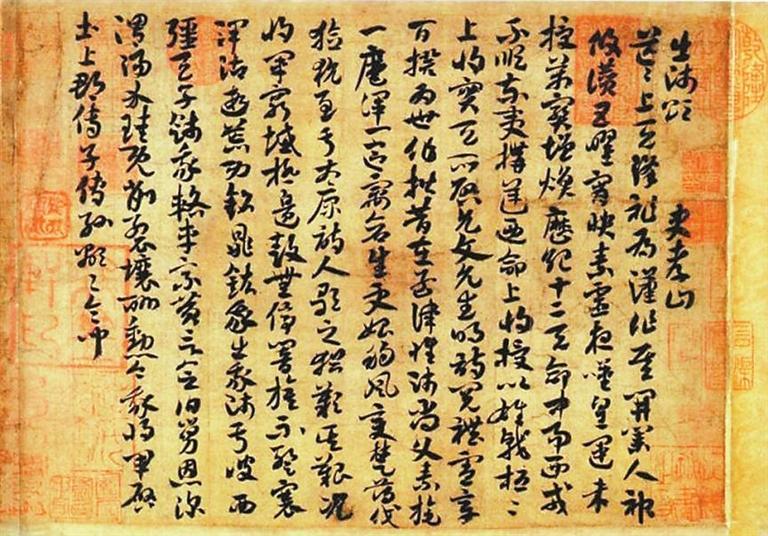 出師頌 史孝山
茫〻上天降祚為漢作基開業人神
攸讚五曜宵映素靈夜嘆皇運未
授萬寶增煥歷紀十二天命中易西戎
不順東夷構逆乃命上將授以雄戟桓〻
上將寔天所啓允文允武明詩閱禮憲章
百揆為世作楷昔在孟津惟師尚父素旄
一麾渾一區宇蒼生更始朔風變楚薄伐
獫狁至于太原詩人歌之猶歎其艱況
我將軍窮城極邊鼓無停響旗不蹔褰
澤沾遐荒功銘鼎鉉我出我師于彼西
疆天子餞我輅車乘黃言念伯舅恩深
渭陽介珪既削裂壤酬勳今我將軍啓
土上郡傳子傳孫顯〻令問